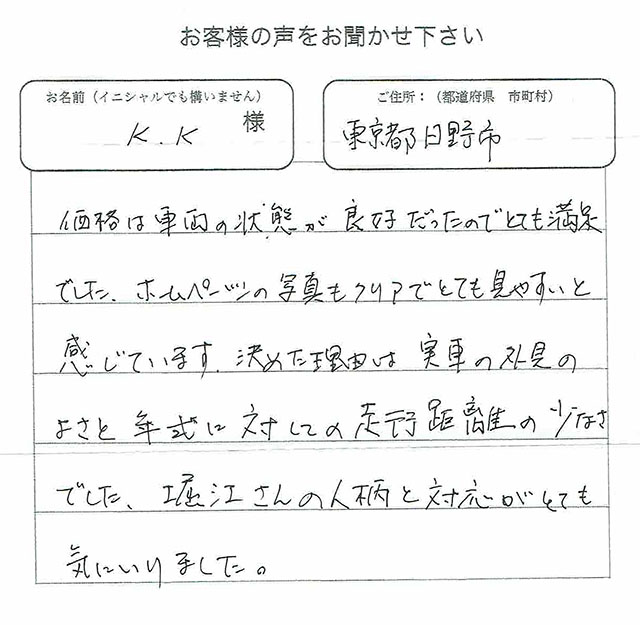 お客様の声をお聞かせ下さい
お名前（イニシャルでも構いません）
K.K 様
ご住所：（都道府県 市町村）
東京都日野市
価格は車両の状態が良好だったのでとても満足
でした、ホームページの写真もクリアでとても見やすいと
感じています。決めた理由は実車の外見の
よさと年式に対しての走行距離の少なさ
でした、堀江さんの人柄と対応がとても
気にいりました。